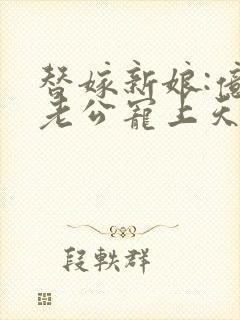 替嫁新娘:億
老公寵上天
段軼群